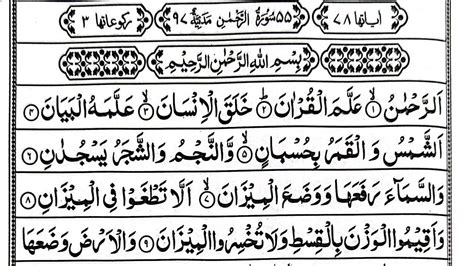 اٰیاتها ٧٨ ٥٥ سُوْرَةُ الرَّحْمٰنِ مَدَنِيَّةٌ ٩٧ رکوعاتها ٣
بِسْمِ اللّٰهِ الرَّحْمٰنِ الرَّحِيْمِ
اَلرَّحْمٰنُ ۙ﴿١﴾ عَلَّمَ الْقُرْاٰنَ ؕ﴿٢﴾ خَلَقَ الْاِنْسَانَ ۙ﴿٣﴾ عَلَّمَهُ الْبَيَانَ ﴿٤﴾
اَلشَّمْسُ وَ الْقَمَرُ بِحُسْبَانٍ ۪﴿٥﴾ وَّالنَّجْمُ وَالشَّجَرُ يَسْجُدٰنِ ﴿٦﴾
وَالسَّمَآءَ رَفَعَهَا وَوَضَعَ الْمِيْزَانَ ۙ﴿٧﴾ اَلَّا تَطْغَوْا فِى الْمِيْزَانِ ﴿٨﴾
وَاَقِيْمُوا الْوَزْنَ بِالْقِسْطِ وَلَا تُخْسِرُوا الْمِيْزَانَ ﴿٩﴾ وَالْاَرْضَ وَضَعَهَا